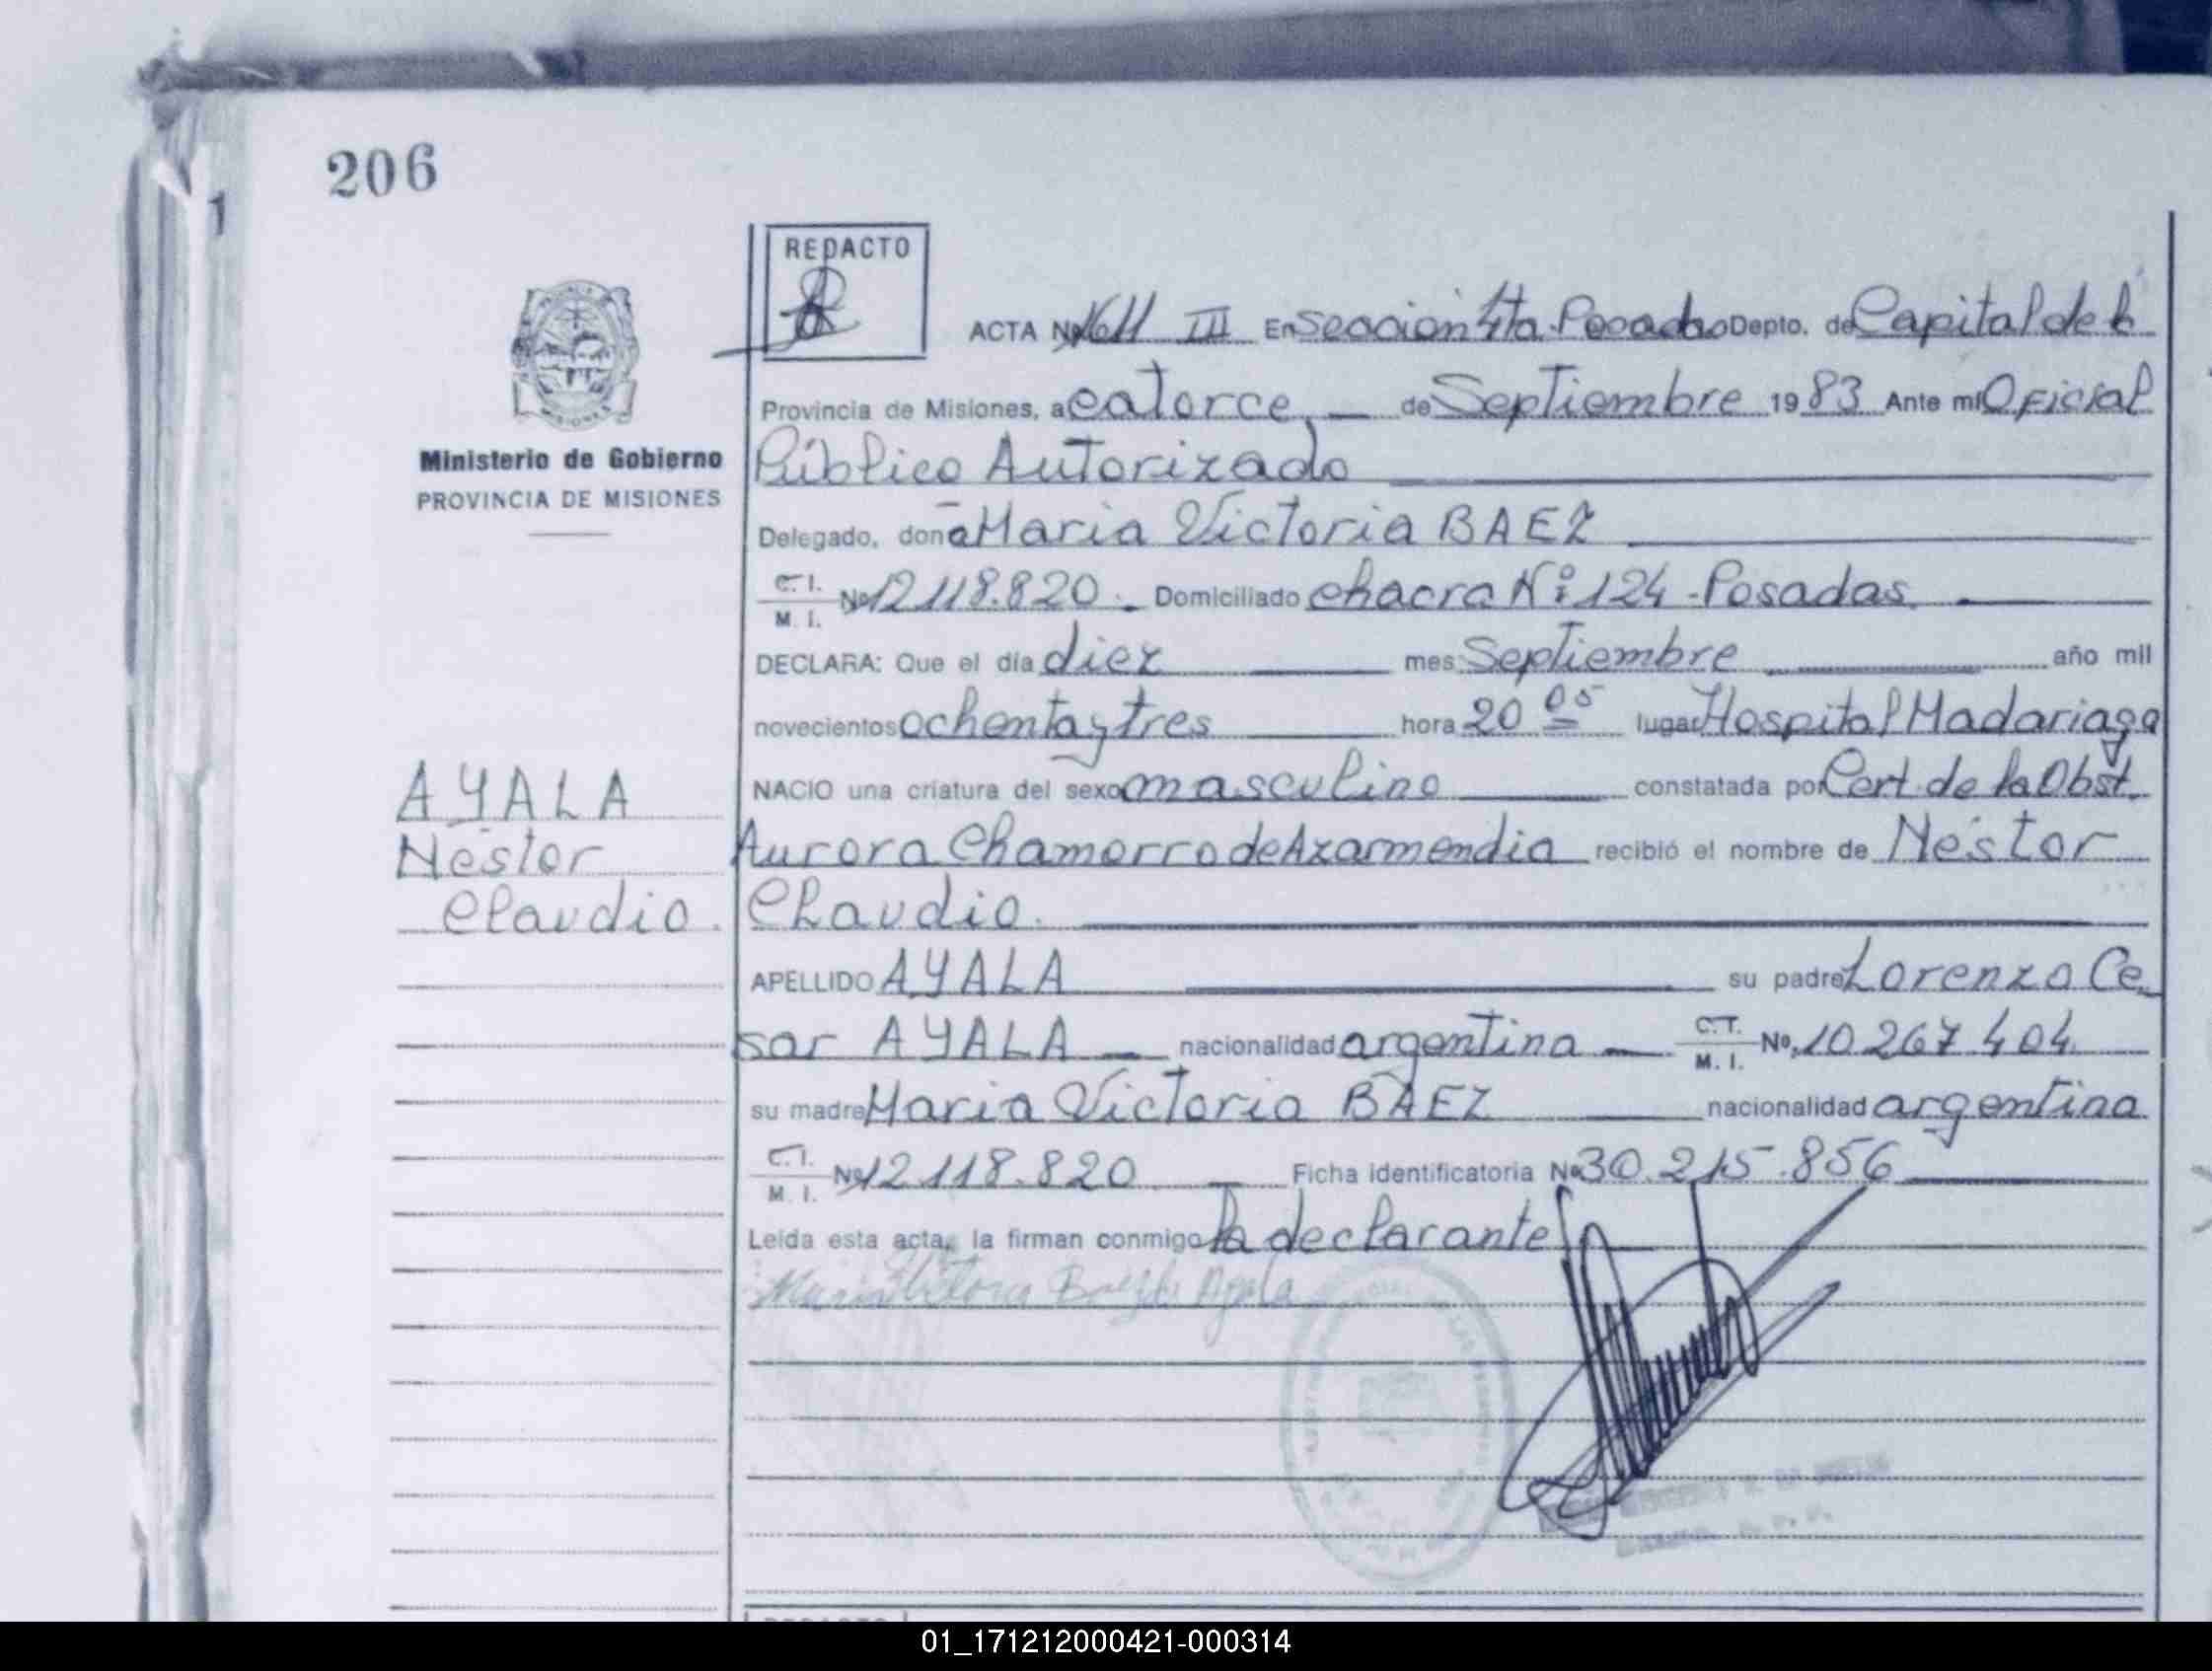 206
1
REDACTO
ACTA Nº 1611 III En Sección 4ta. Posadas Depto. de Capital de la
Provincia de Misiones, a catorce, — de Septiembre 1983 Ante mi Oficial
Ministerio de Gobierno
PROVINCIA DE MISIONES
Público Autorizado
Delegado, don a Maria Victoria BAEZ
C. I.
M. I. Nº 12.118.820. Domiciliado chacra Nº 124 - Posadas.
DECLARA: Que el día diez mes Septiembre año mil
novecientos ochenta y tres hora 20 05 lugar Hospital Madariaga
NACIO una criatura del sexo masculino constatada por Cert. de la Obst.
AYALA
Néstor
Claudio.
Aurora Chamorro de Azarmendia recibió el nombre de Néstor
Claudio.
APELLIDO AYALA su padre Lorenzo Ce
sar AYALA — nacionalidad argentina — C.I. M. I. Nº 10.267.404
su madre Maria Victoria BAEZ nacionalidad argentina
C. I.
M. I. Nº 12.118.820 Ficha identificatoria Nº 30.215.856
Leída esta acta, la firman conmigo la declarante
Maria Victoria Baez de Ayala
01_171212000421-000314